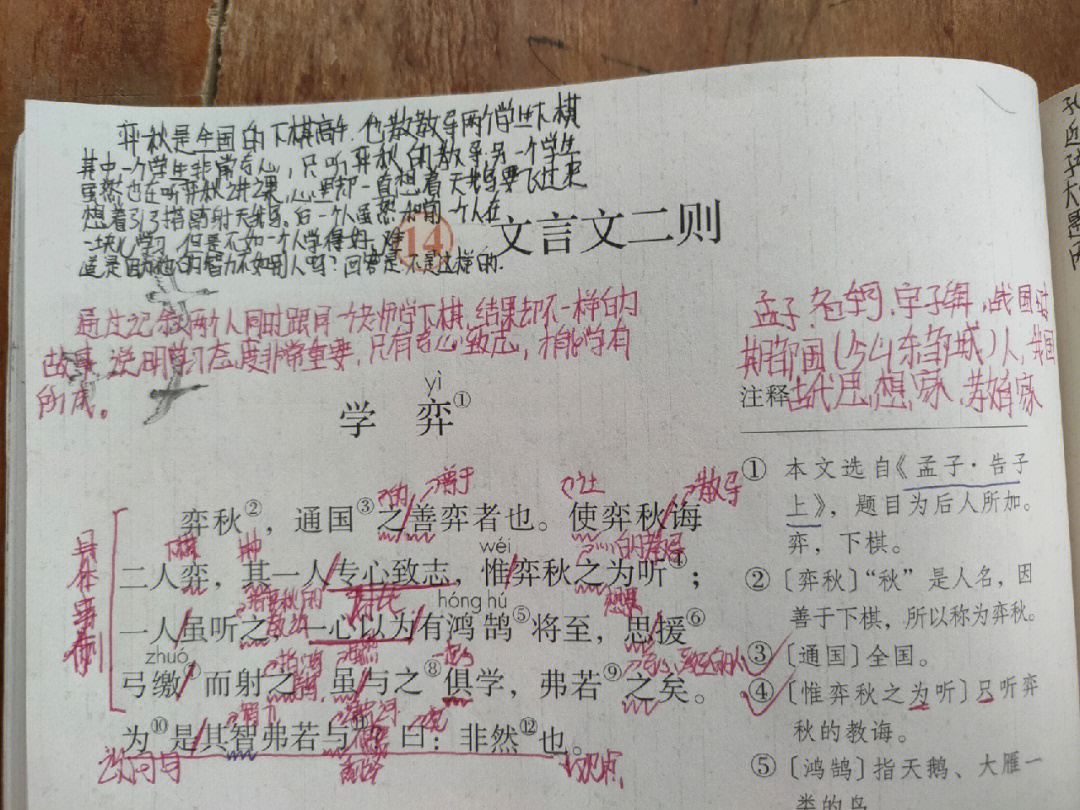 弈秋是全国的下棋高手.他教教导两个学生下棋
其中,一个学生非常专心,只听弈秋的教导,另一个学生
虽然也在听弈秋讲课,心里却一直想着天鹅要飞过来
想着引弓搭箭射天鹅。后一个人虽然和前一个人在
一块儿学习.但是不如前一个人学得好.难
道是因为他的智力不如别人吗?回答是:不是这样的.
14 文言文二则
通过记叙两个人同时跟同一个老师学下棋.结果却不一样的
故事,说明学习态度非常重要,只有专心致志,才能学有
所成。
孟子.名轲.字子舆,战国
期邹国(今山东邹城)人,我国
古代思想家、教育家
注释
yì
学 弈①
的 善于 让 教导
弈秋②,通国③之善弈者也。使弈秋诲
下棋 wéi 的教导
二人弈,其一人专心致志,惟弈秋之为听④;
弈秋的 教诲 hóng hú
一人虽听之,一心以为有鸿鹄⑤将至,思援⑥
zhuó
弓缴⑦而射之,虽与之⑧俱学,弗若⑨之矣。
为⑩是其智弗若与⑪?曰:非然⑫也。
具体事例
设问句
观点
① 本文选自《孟子·告子
上》,题目为后人所加。
弈,下棋。
②〔弈秋〕“秋”是人名,因
善于下棋,所以称为弈秋。
③〔通国〕全国。
④〔惟弈秋之为听〕只听弈
秋的教诲。
⑤〔鸿鹄〕指天鹅、大雁一
类的鸟